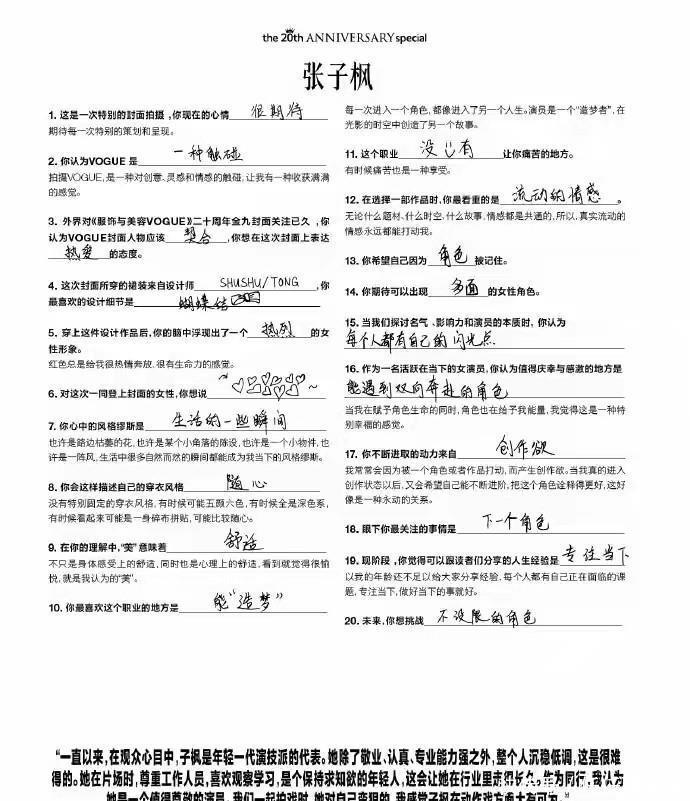 the 20th ANNIVERSARY special
张子枫
1. 这是一次特别的封面拍摄，你现在的心情 很期待
期待每一次特别的策划和呈现。
2. 你认为VOGUE 是 一种触碰
拍摄VOGUE，是一种对创意、灵感和情感的触碰，让我有一种收获满满
的感觉。
3. 外界对《服饰与美容VOGUE》二十周年金九封面关注已久，你
认为VOGUE封面人物应该 契合 ，你想在这次封面上表达
热爱 的态度。
4. 这次封面所穿的裙装来自设计师 SHUSHU/TONG ，你
最喜欢的设计细节是 蝴蝶结
5. 穿上这件设计作品后，你的脑中浮现出了一个 热烈 的女
性形象。
红色总是给我很热情奔放、很有生命力的感觉。
6. 对这次一同登上封面的女性，你想说 ~♡♡♡♡♡♡♡♡~
7. 你心中的风格缪斯是 生活的一些瞬间
也许是路边枯萎的花，也许是某个小角落的陈设，也许是一个小物件，也
许是一阵风，生活中很多自然而然的瞬间都能成为我当下的风格缪斯。
8. 你会这样描述自己的穿衣风格 随心
没有特别固定的穿衣风格，有时候可能五颜六色，有时候全是深色系，
有时候看起来可能是一身碎布拼贴，可能比较随心。
9. 在你的理解中，“美”意味着 舒适
不只是身体感受上的舒适，同时也是心理上的舒适，看到就觉得很愉
悦，就是我认为的“美”。
10. 你最喜欢这个职业的地方是 能“造梦”
每一次进入一个角色，都像进入了另一个人生。演员是一个“造梦者”，在
光影的时空中创造了另一个故事。
11. 这个职业 没有 让你痛苦的地方。
有时候痛苦也是一种享受。
12. 在选择一部作品时，你最看重的是 流动的情感 。
无论什么题材、什么时空、什么故事，情感都是共通的，所以，真实流动的
情感永远都能打动我。
13. 你希望自己因为 角色 被记住。
14. 你期待可以出现 多面 的女性角色。
15. 当我们探讨名气、影响力和演员的本质时，你认为
每个人都有自己的闪光点
16. 作为一名活跃在当下的女演员，你认为值得庆幸与感激的地方是
能遇到双向奔赴的角色
当我在赋予角色生命的同时，角色也在给予我能量，我觉得这是一种特
别幸福的感觉。
17. 你不断进取的动力来自 创作欲
我常常会因为被一个角色或者作品打动，而产生创作欲。当我真的进入
创作状态以后，又会希望自己能不断进阶，把这个角色诠释得更好，这好
像是一种永动的关系。
18. 眼下你最关注的事情是 下一个角色
19. 现阶段，你觉得可以跟读者们分享的人生经验是 专注当下
以我的年龄还不足以给大家分享经验，每个人都有自己正在面临的课
题，专注当下，做好当下的事就好。
20. 未来，你想挑战 不设限的角色
“一直以来，在观众心目中，子枫是年轻一代演技派的代表。她除了敬业、认真、专业能力强之外，整个人沉稳低调，这是很难
得的。她在片场时，尊重工作人员，喜欢观察学习，是个保持求知欲的年轻人，这会让她在行业里走得长久。作为同行，我认为
她是一个值得尊敬的演员。我们一起拍戏时，她对自己